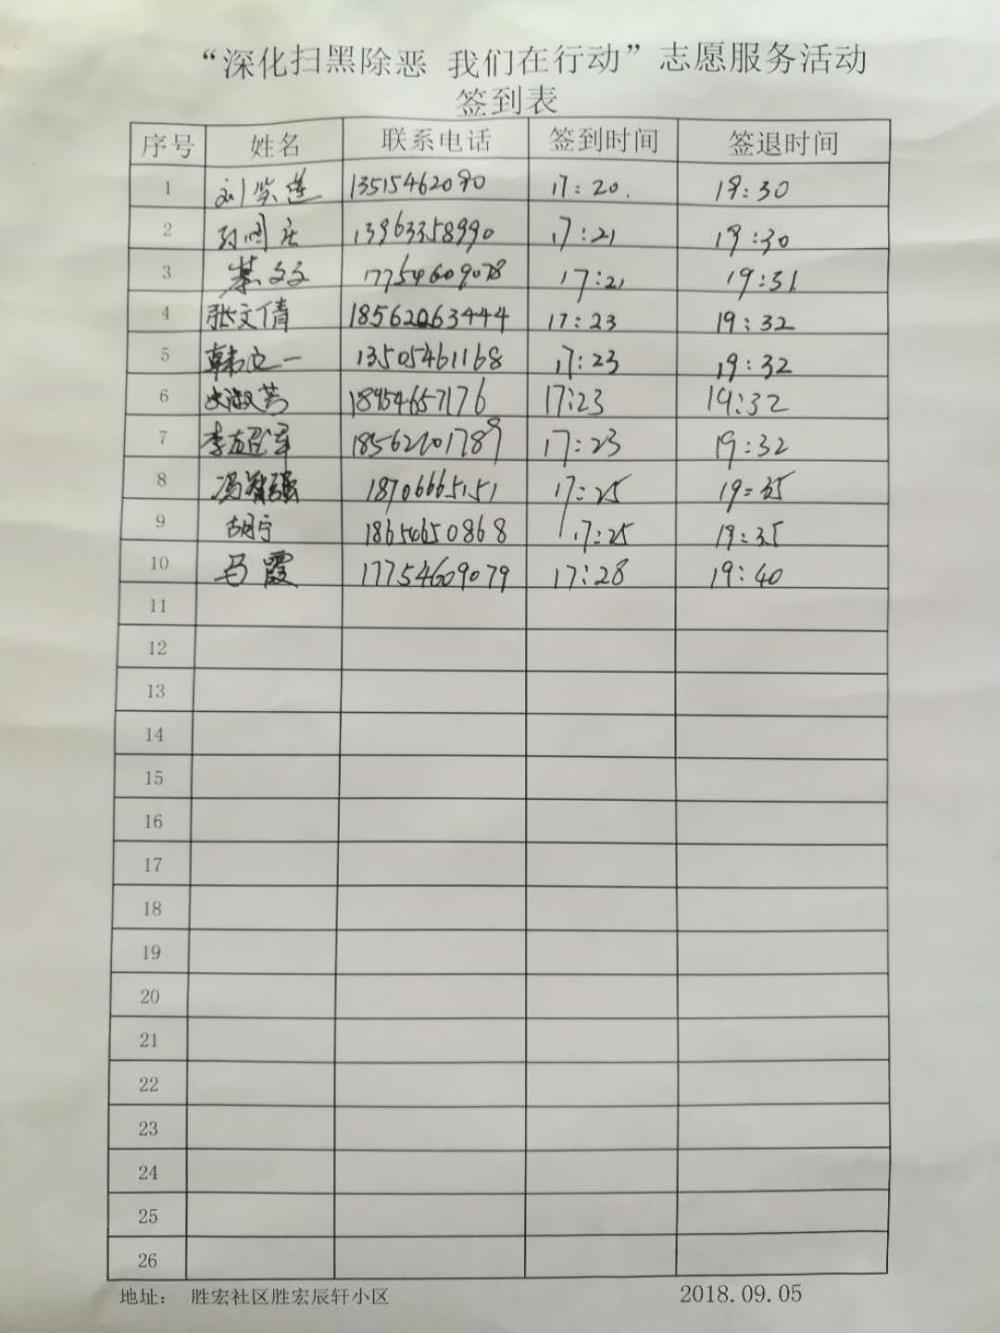 “深化扫黑除恶 我们在行动”志愿服务活动
签到表
序号 姓名 联系电话 签到时间 签退时间
1 刘 莲 13515462090 17:20. 19:30
2 孙国庆 13963358990 17:21 19:30
3 綦文文 17754609078 17:21 19:31
4 张文倩 18562063444 17:23 19:32
5 韩文一 13505461168 17:23 19:32
6 淑芳 18954657176 17:23 19:32
7 李 军 18562101789 17:23 19:32
8 冯智强 18706665151 17:25 19:35
9 胡宁 18654650868 17:25 19:35
10 马霞 17754609079 17:28 19:40
11
12
13
14
15
16
17
18
19
20
21
22
23
24
25
26
地址: 胜宏社区胜宏辰轩小区 2018.09.05